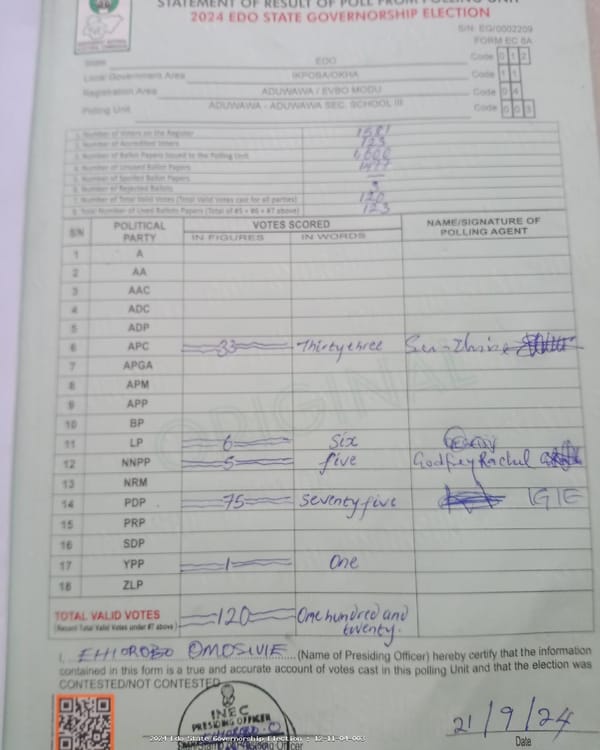 STATEMENT OF RESULT OF POLL FROM POLLING UNIT
2024 EDO STATE GOVERNORSHIP ELECTION
S/N: EG/0002209
FORM EC 8A
State EDO Code 0 1 2
Local Government Area IKPOBA/OKHA Code 1 1
Registration Area ADUWAWA / EVBO MODU Code 0 4
Polling Unit ADUWAWA - ADUWAWA SEC. SCHOOL III Code 0 0 3
1. Number of Voters on the Register 1581
2. Number of Accredited Voters 123
3. Number of Ballot Papers Issued to the Polling Unit
4. Number of Unused Ballot Papers 1477
5. Number of Spoiled Ballot Papers —
6. Number of Rejected Ballots 3
7. Number of Total Valid Votes (Total Valid Votes cast for all parties) 120
8. Total Number of Used Ballot Papers (Total of #5 + #6 + #7 above) 123
S/N POLITICAL PARTY VOTES SCORED NAME/SIGNATURE OF POLLING AGENT
IN FIGURES IN WORDS
1 A
2 AA
3 AAC
4 ADC
5 ADP
6 APC 33 Thirty three
7 APGA
8 APM
9 APP
10 BP
11 LP 6 Six
12 NNPP 5 five Godfrey Rachel
13 NRM
14 PDP 75 Seventy five IGIE
15 PRP
16 SDP
17 YPP 1 One
18 ZLP
TOTAL VALID VOTES 120 One hundred and
(Record Total Valid Votes under #7 above) twenty.
I, EHIOROBO OMOSIVIE (Name of Presiding Officer) hereby certify that the information
contained in this form is a true and accurate account of votes cast in this polling Unit and that the election was
CONTESTED/NOT CONTESTED
INEC
PRESIDING OFFICER
21/9/24
2024 Edo State Governorship Election : 12-11-04-003
Date
ORIGINAL